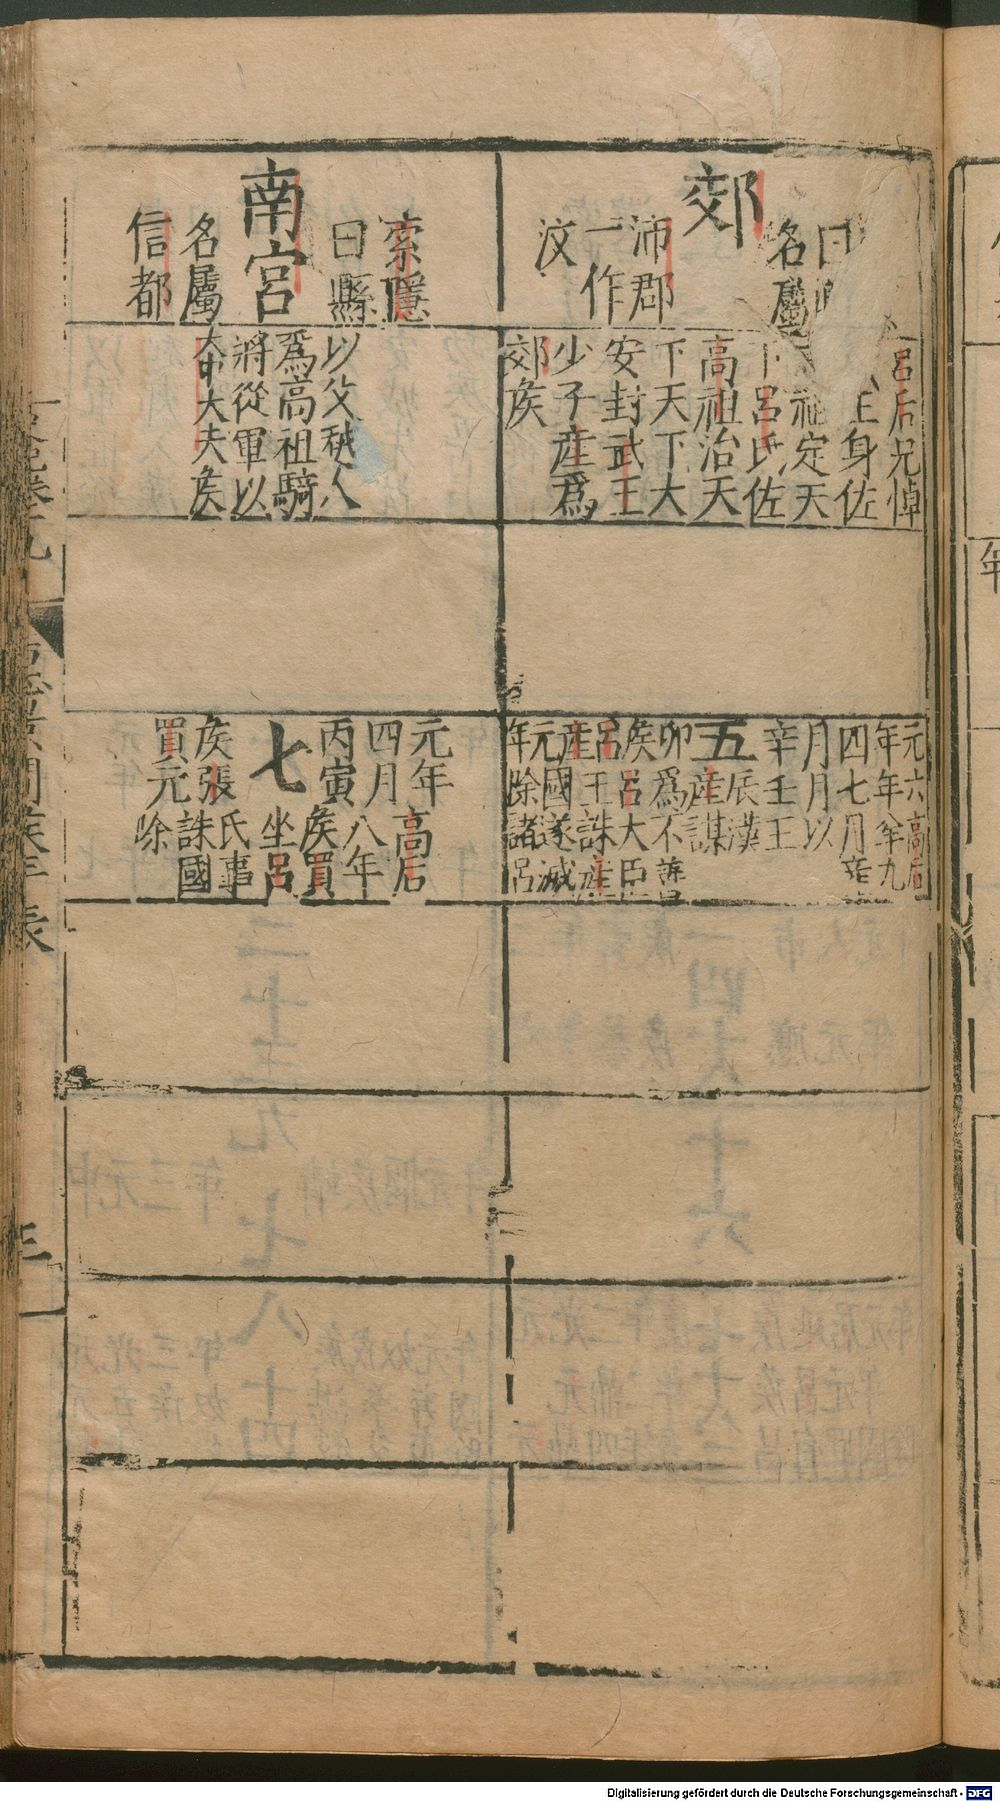 曰
名屬
郊
沛郡
一作
汶
呂后兄悼
王身佐
祖定天
下呂氏佐
高祖治天
下天下大
安封武王
少子產爲
郊矦
元六高后
年年八年九
四七月產
月月以
辛壬王
五
辰漢
產謀
卯爲不善
矦呂大臣
呂王誅產
產國遂滅
元國
年除諸呂
索隱
曰縣
南宮
名屬
信都
以父越人
爲高祖騎
將從軍以
大中大夫矦
元年
四月
丙寅
七
矦張
買元
高后
八年
矦買
坐呂
氏事
誅國
除
間矦年表
三
Digitalisierung gefördert durch die Deutsche Forschungsgemeinschaft - DFG